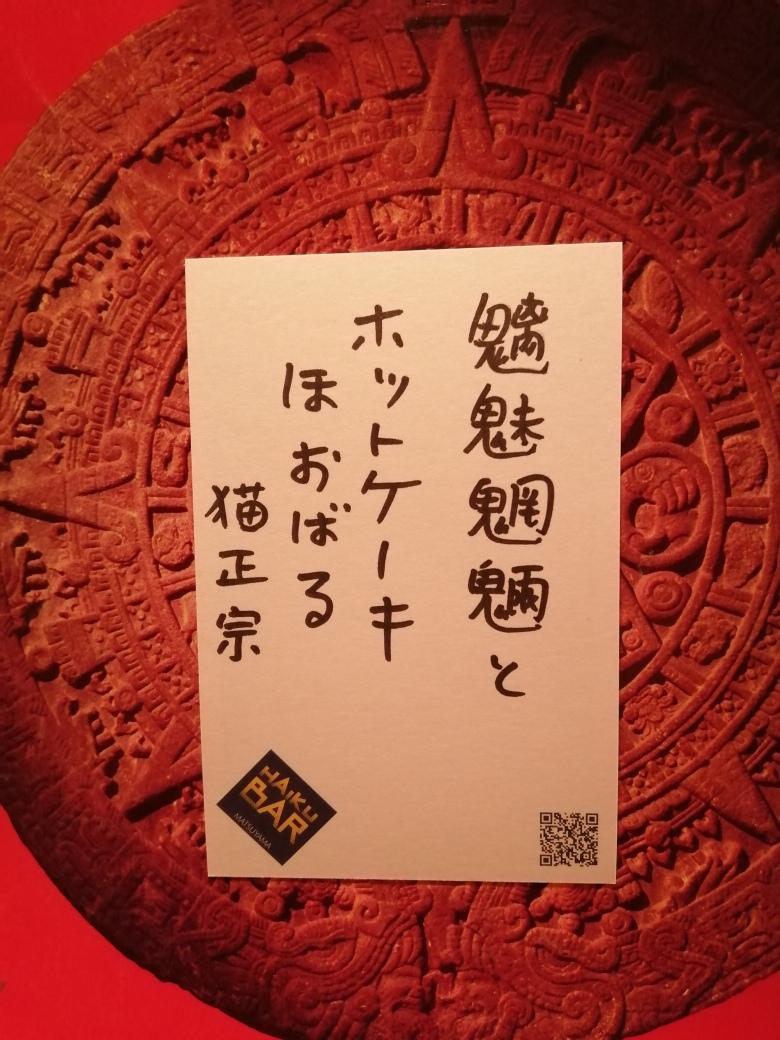 魑魅魍魎と
ホットケーキ
ほおばる
猫正宗
HAIKU
BAR
MATSUYAMA